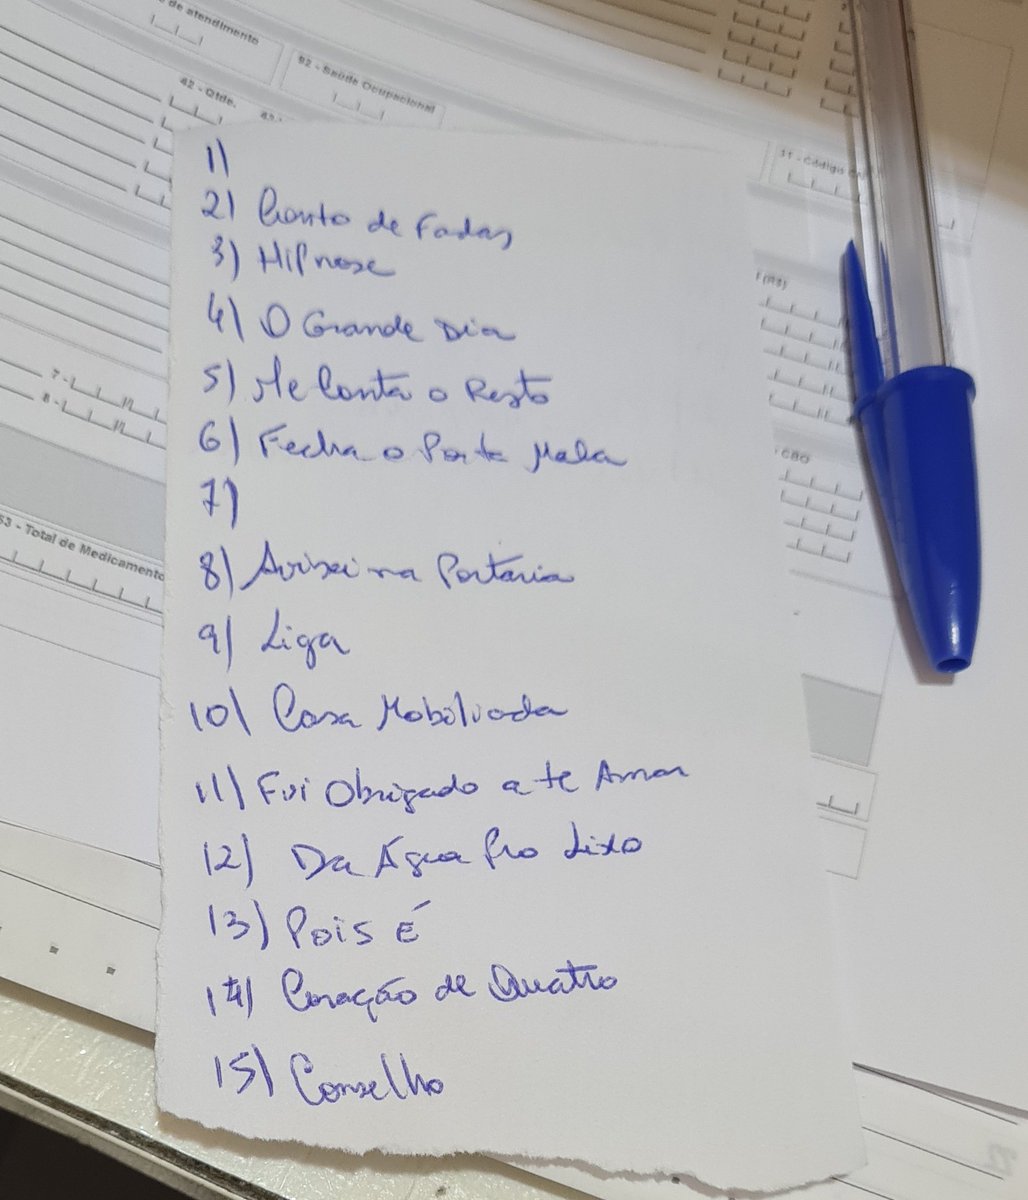 de atendimento
92 - Saúde Ocupacional
42 - Qtde.
31 - Código
7 -
8 -
53 - Total de Medicamento
(R$)
CBO
1)
2) Conto de Fadas
3) Hipnose
4) O Grande Dia
5) Me Conta o Resto
6) Fecha o Porta Mala
7)
8) Avisei na Portaria
9) Liga
10) Casa Mobiliada
11) Fui Obrigado a te Amar
12) Da Água Pro Lixo
13) Pois É
14) Coração de Quatro
15) Conselho